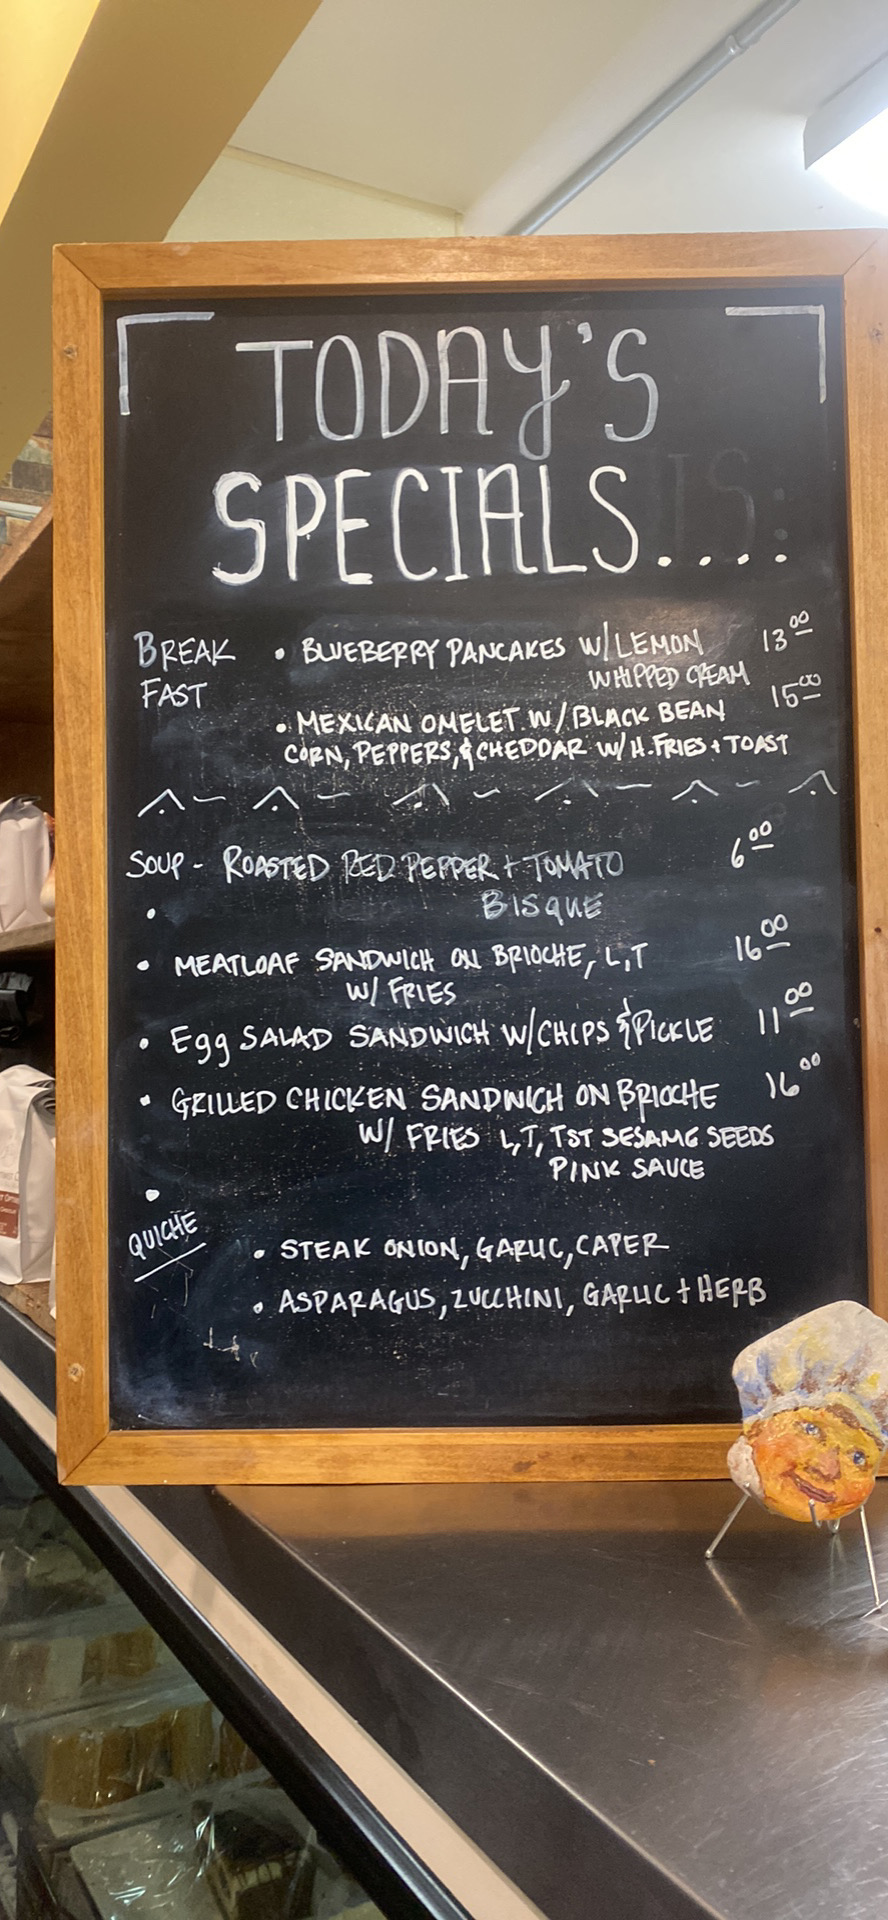 TODAY'S
SPECIALS....
BREAK
FAST
• BLUEBERRY PANCAKES W/LEMON 13.00
WHIPPED CREAM
• MEXICAN OMELET W/BLACK BEAN 15.00
CORN, PEPPERS, & CHEDDAR W/H.FRIES + TOAST
SOUP - ROASTED RED PEPPER + TOMATO 6.00
BISQUE
• MEATLOAF SANDWICH ON BRIOCHE, L,T 16.00
W/ FRIES
• Egg SALAD SANDWICH W/CHIPS & PICKLE 11.00
• GRILLED CHICKEN SANDWICH ON BRIOCHE 16.00
W/ FRIES L,T, TST SESAME SEEDS
PINK SAUCE
QUICHE
• STEAK ONION, GARLIC, CAPER
• ASPARAGUS, ZUCCHINI, GARLIC + HERB